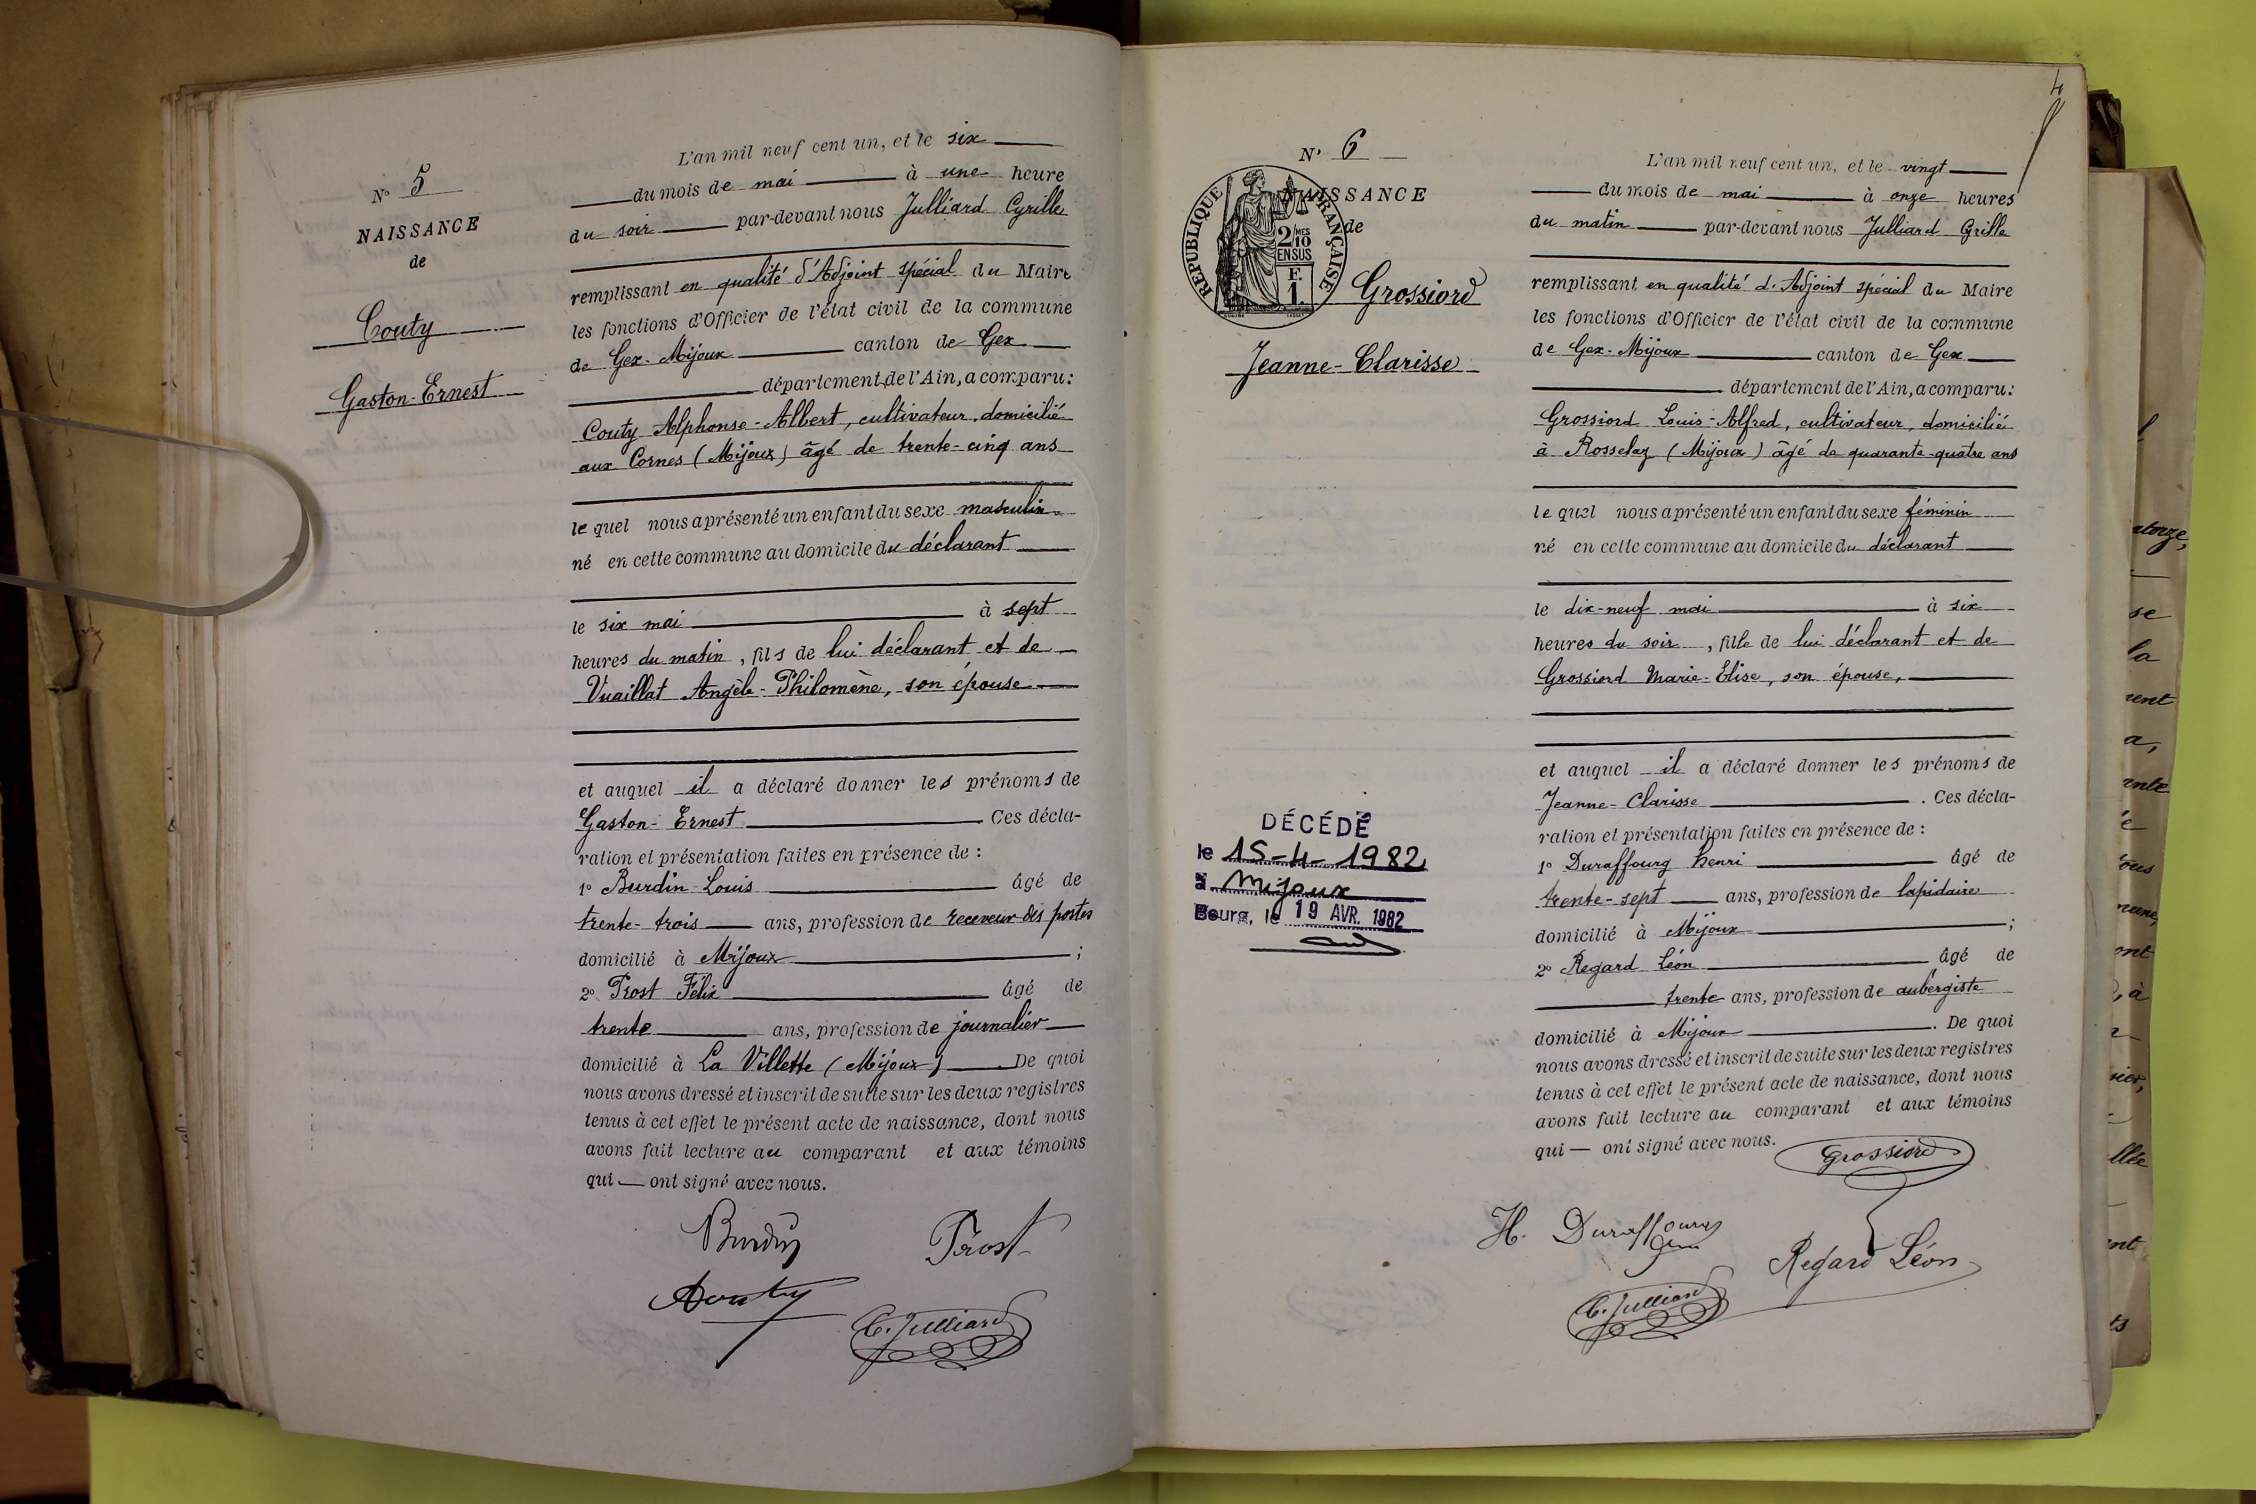 N° 5
NAISSANCE
de
Couty
Gaston-Ernest
L'an mil neuf cent un, et le six
du mois de mai à une heure
du soir par-devant nous Julliard Cyrille
remplissant en qualité d'Adjoint spécial du Maire
les fonctions d'Officier de l'état civil de la commune
de Gex-Mijoux canton de Gex
département de l'Ain, a comparu:
Couty Alphonse-Albert, cultivateur, domicilié
aux Cornes (Mijoux) âgé de trente-cinq ans
le quel nous a présenté un enfant du sexe masculin
né en cette commune au domicile du déclarant
le six mai à sept
heures du matin, fils de lui déclarant et de
Vuaillat Angèle-Philomène, son épouse
et auquel il a déclaré donner les prénoms de
Gaston-Ernest Ces décla-
ration et présentation faites en présence de :
1° Burdin Louis âgé de
trente-trois ans, profession de receveur des postes
domicilié à Mijoux ;
2° Prost Félix âgé de
trente ans, profession de journalier
domicilié à La Villette (Mijoux) De quoi
nous avons dressé et inscrit de suite sur les deux registres
tenus à cet effet le présent acte de naissance, dont nous
avons fait lecture au comparant et aux témoins
qui — ont signé avec nous.
Burdin Prost
Couty
C. Julliard
4
N° 6
NAISSANCE
de
RÉPUBLIQUE FRANÇAISE
2/10 MES
EN SUS
F.
1.
Grossiord
Jeanne-Clarisse
DÉCÉDÉ
le 15-4-1982
à Mijoux
Bourg, le 19 AVR. 1982
L'an mil neuf cent un, et le vingt
du mois de mai à onze heures
du matin par-devant nous Julliard Cyrille
remplissant en qualité d'Adjoint spécial du Maire
les fonctions d'Officier de l'état civil de la commune
de Gex-Mijoux canton de Gex
département de l'Ain, a comparu:
Grossiord Louis-Alfred, cultivateur, domicilié
à Rosselaz (Mijoux) âgé de quarante-quatre ans
le quel nous a présenté un enfant du sexe féminin
né en cette commune au domicile du déclarant
le dix-neuf mai à six
heures du soir, fille de lui déclarant et de
Grossiord Marie-Elise, son épouse,
et auquel il a déclaré donner les prénoms de
Jeanne-Clarisse . Ces décla-
ration et présentation faites en présence de :
1° Duraffourg Henri âgé de
trente-sept ans, profession de lapidaire
domicilié à Mijoux ;
2° Regard Léon âgé de
trente ans, profession de aubergiste
domicilié à Mijoux . De quoi
nous avons dressé et inscrit de suite sur les deux registres
tenus à cet effet le présent acte de naissance, dont nous
avons fait lecture au comparant et aux témoins
qui — ont signé avec nous.
Grossiord
H. Duraffourg
Regard Léon
C. Julliard